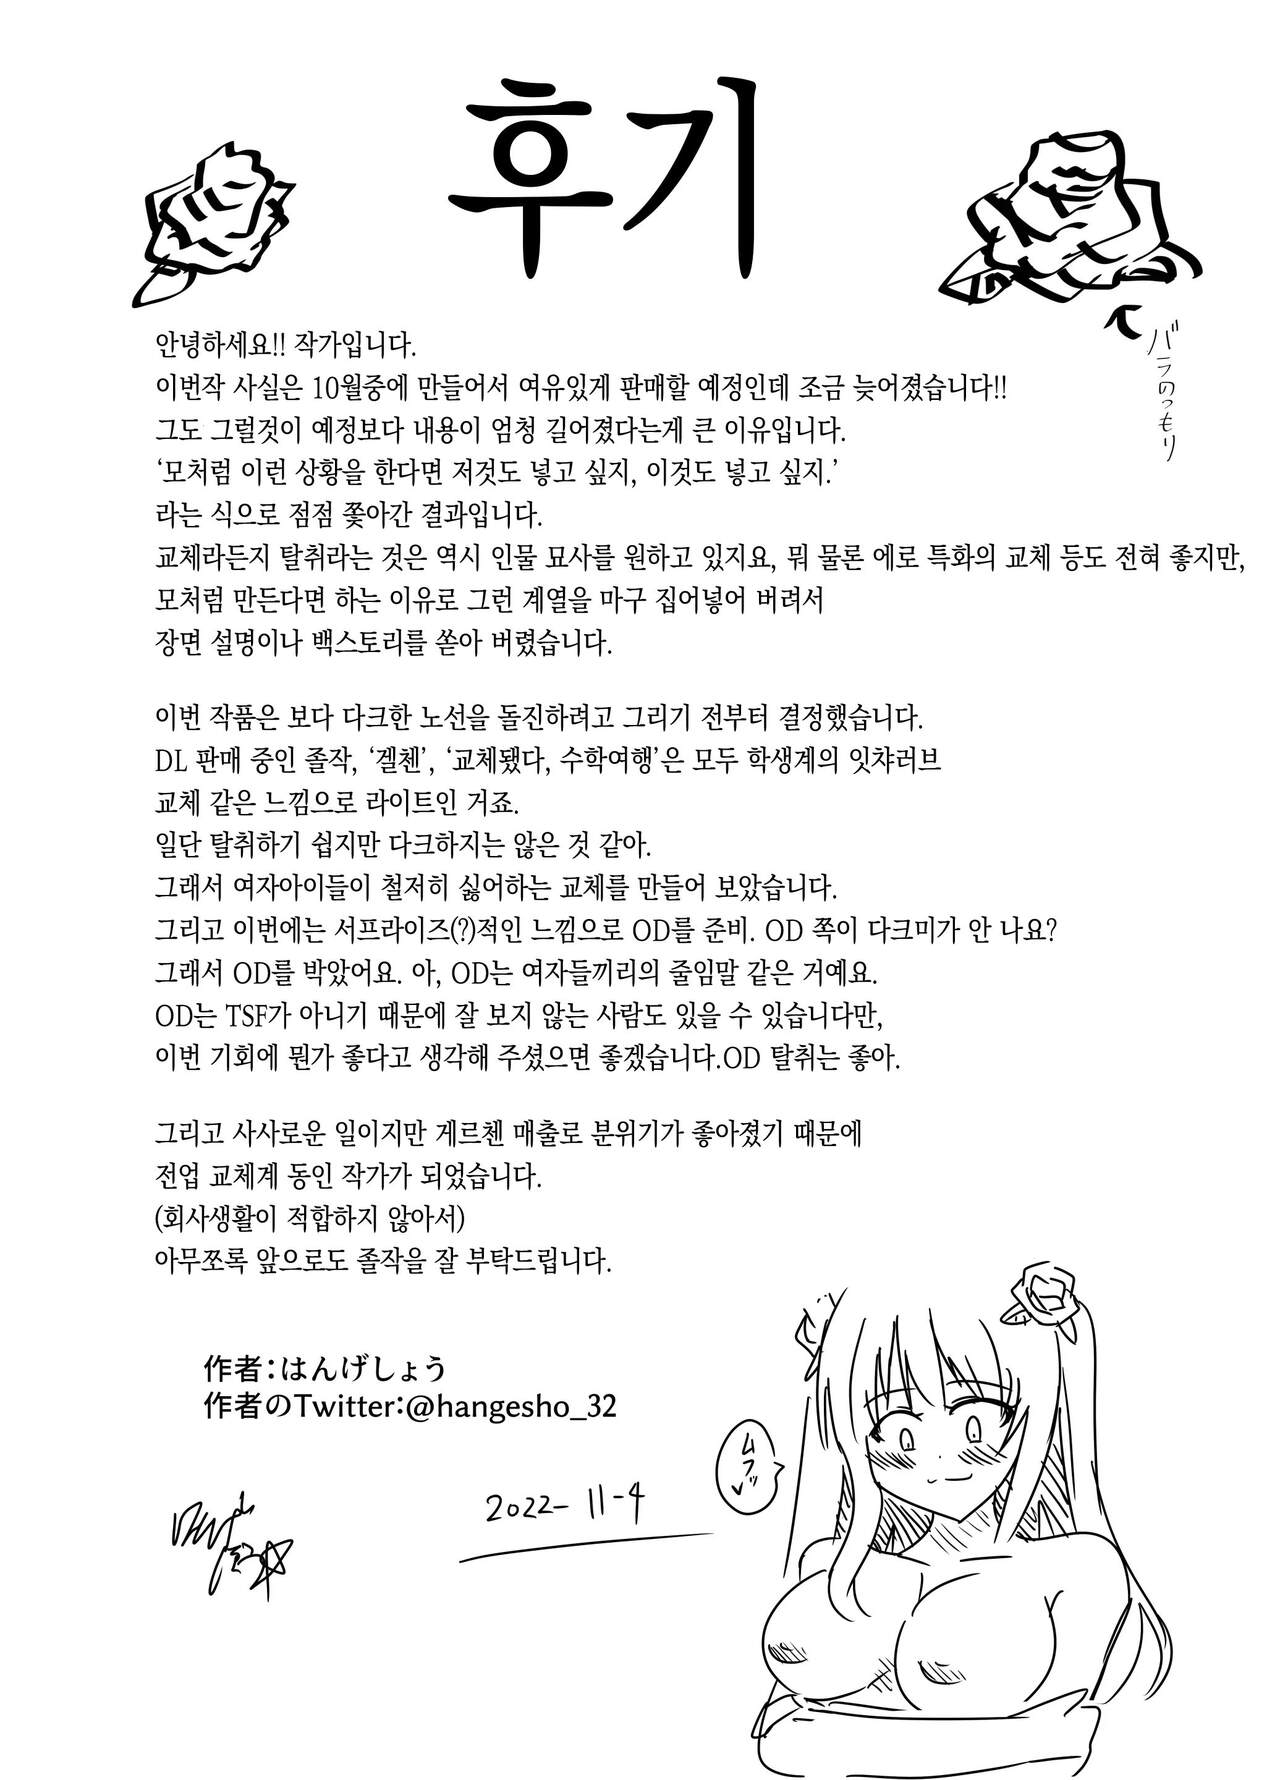 후기
バラのつもり
안녕하세요!! 작가입니다.
이번작 사실은 10월중에 만들어서 여유있게 판매할 예정인데 조금 늦어졌습니다!!
그도 그럴것이 예정보다 내용이 엄청 길어졌다는게 큰 이유입니다.
‘모처럼 이런 상황을 한다면 저것도 넣고 싶지, 이것도 넣고 싶지.’
라는 식으로 점점 쫓아간 결과입니다.
교체라든지 탈취라는 것은 역시 인물 묘사를 원하고 있지요, 뭐 물론 에로 특화의 교체 등도 전혀 좋지만,
모처럼 만든다면 하는 이유로 그런 계열을 마구 집어넣어 버려서
장면 설명이나 백스토리를 쏟아 버렸습니다.
이번 작품은 보다 다크한 노선을 돌진하려고 그리기 전부터 결정했습니다.
DL 판매 중인 졸작, ‘겔첸’, ‘교체됐다, 수학여행’은 모두 학생계의 잇챠러브
교체 같은 느낌으로 라이트인 거죠.
일단 탈취하기 쉽지만 다크하지는 않은 것 같아.
그래서 여자아이들이 철저히 싫어하는 교체를 만들어 보았습니다.
그리고 이번에는 서프라이즈(?)적인 느낌으로 OD를 준비. OD 쪽이 다크미가 안 나요?
그래서 OD를 박았어요. 아, OD는 여자들끼리의 줄임말 같은 거예요.
OD는 TSF가 아니기 때문에 잘 보지 않는 사람도 있을 수 있습니다만,
이번 기회에 뭔가 좋다고 생각해 주셨으면 좋겠습니다.OD 탈취는 좋아.
그리고 사사로운 일이지만 게르첸 매출로 분위기가 좋아졌기 때문에
전업 교체계 동인 작가가 되었습니다.
(회사생활이 적합하지 않아서)
아무쪼록 앞으로도 졸작을 잘 부탁드립니다.
作者:はんげしょう
作者のTwitter:@hangesho_32
ムフッ
2022-11-4